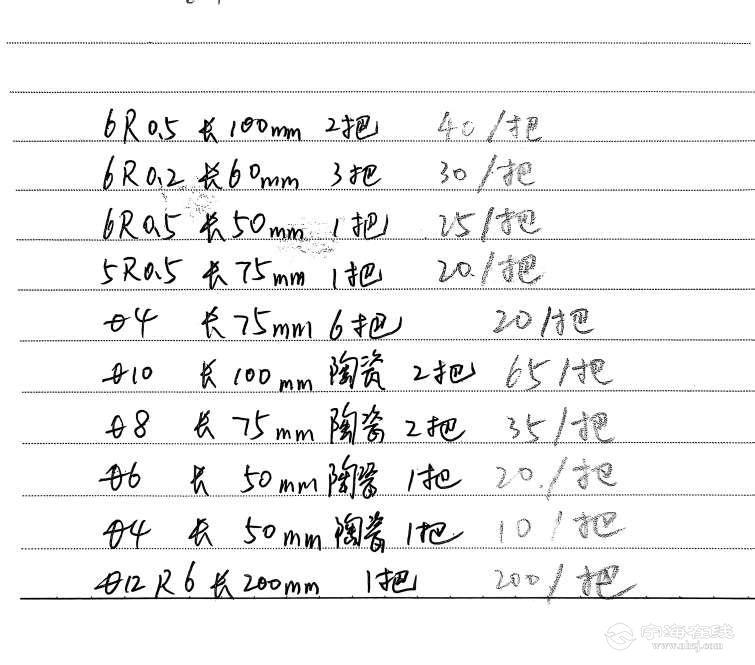 6R0.5 长100mm 2把 40/把
6R0.2 长60mm 3把 30/把
6R0.5 长50mm 1把 25/把
5R0.5 长75mm 1把 20./把
θ4 长75mm 6把 20/把
θ10 长100mm 陶瓷 2把 65/把
θ8 长75mm 陶瓷 2把 35/把
θ6 长50mm 陶瓷 1把 20./把
θ4 长50mm 陶瓷 1把 10/把
θ12 R6 长200mm 1把 200/把
宁海在线
www.nhzj.com